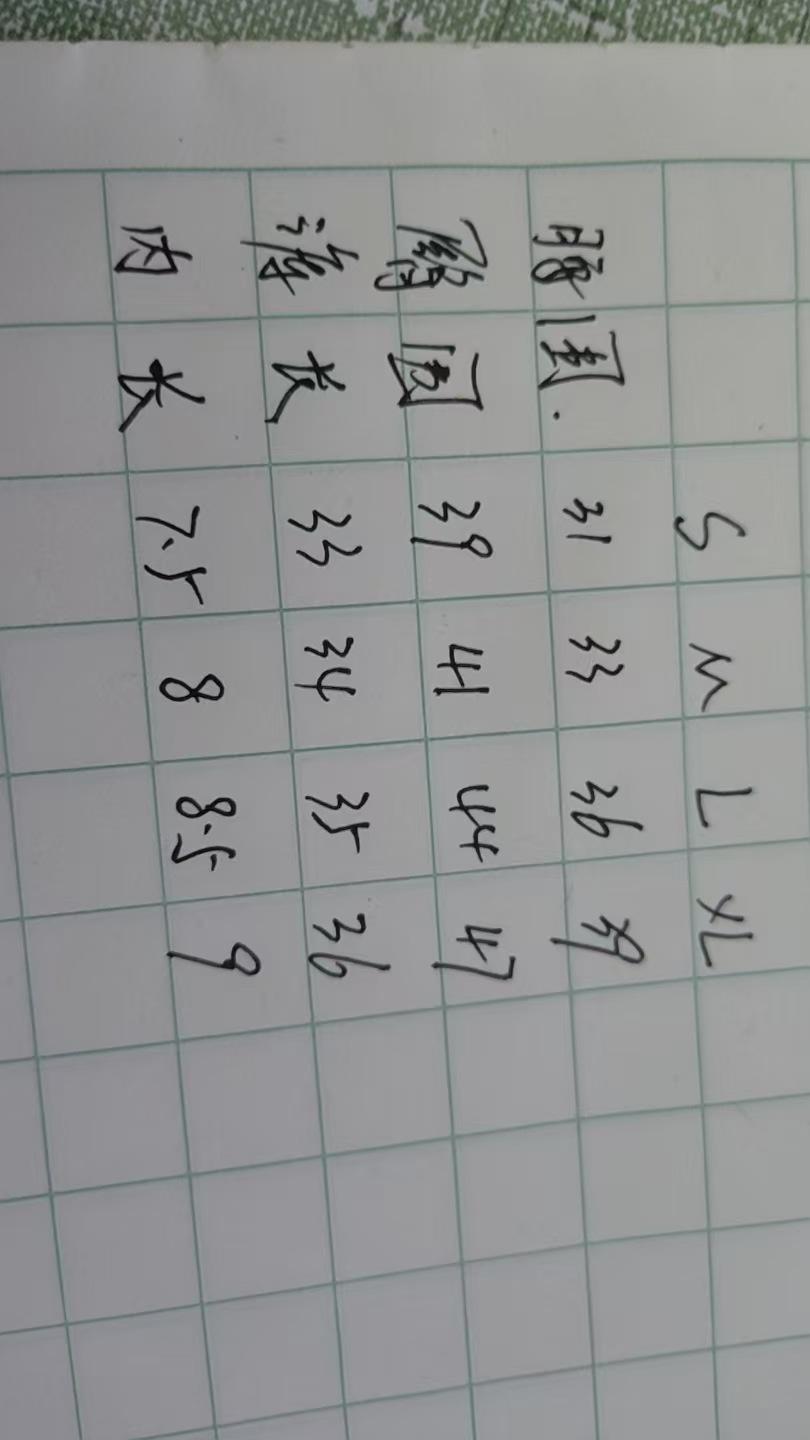 S M L XL
腰围. 31 33 36 39
臀围 39 41 44 47
裤长 33 34 35 36
内长 7.5 8 8.5 9